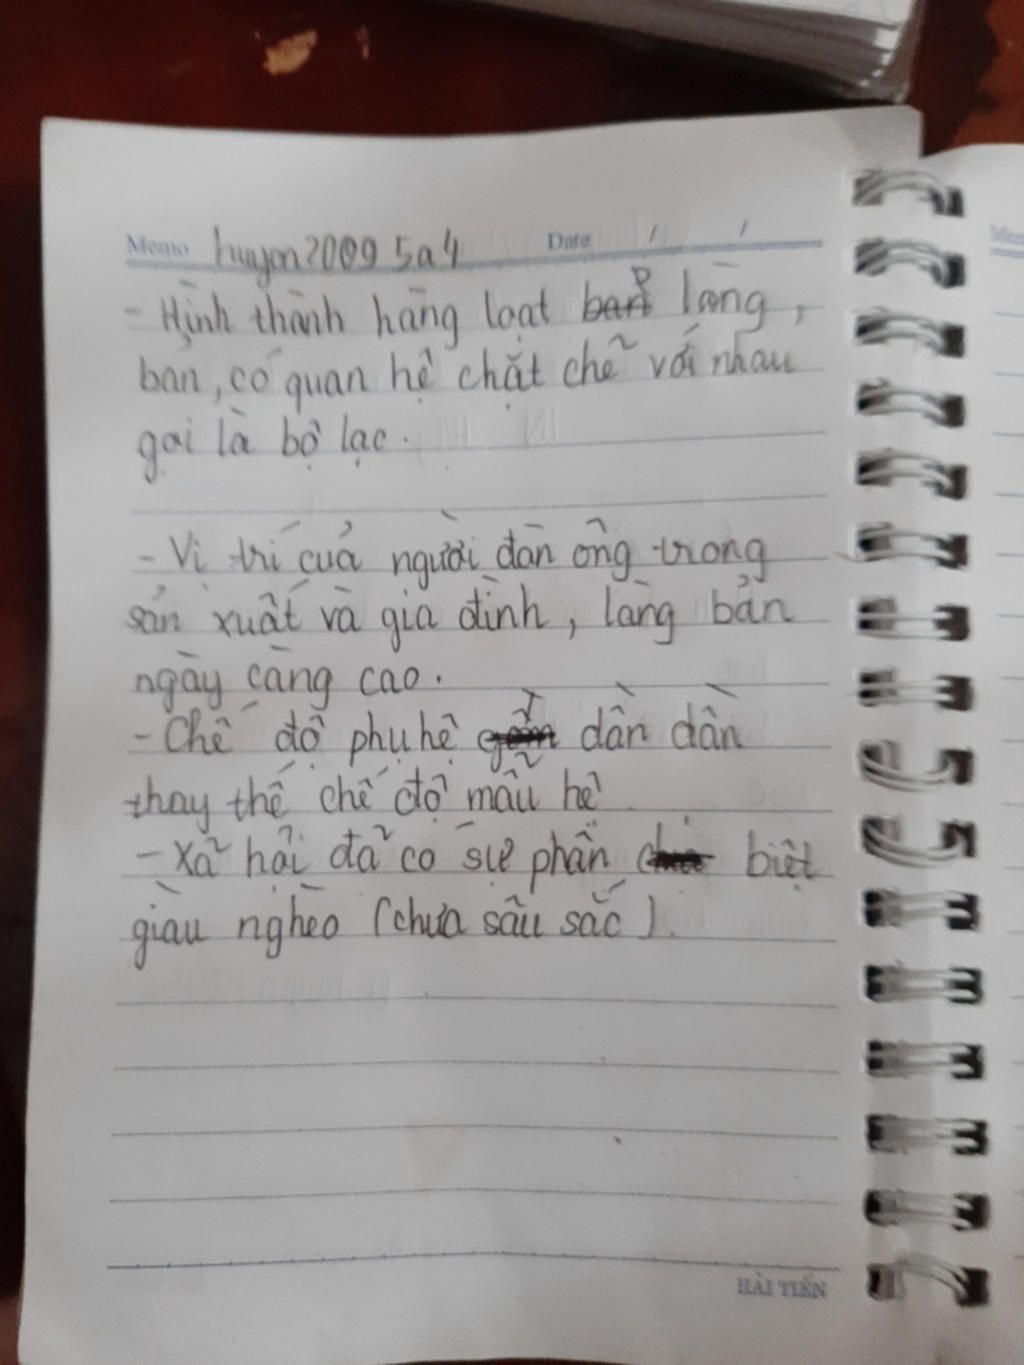 Memo huyen2009 5a4 Date / /
- Hình thành hàng loạt bản làng,
bản, có quan hệ chặt chẽ với nhau
gọi là bộ lạc.
- Vị trí của người đàn ông trong
sản xuất và gia đình, làng bản
ngày càng cao.
- Chế độ phụ hệ dần dần
thay thế chế độ mẫu hệ
- Xã hội đã có sự phân biệt
giàu nghèo (chưa sâu sắc).
HẢI TIẾN